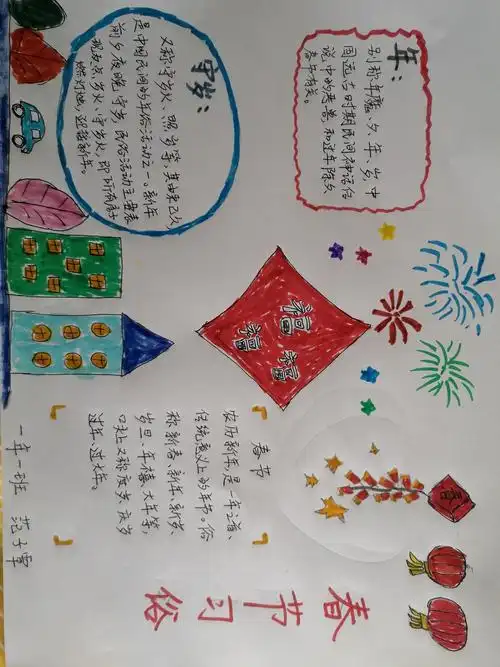 年:
别称年魔、夕、年、岁,中
国远古时期民间神话传
说中的恶兽,和过年除夕
有关。
春
福福
福
春节习俗
守岁:
又称守岁火、照岁等,其由来已久
是中国民间的年俗活动之一。新年
前夕夜晚守岁,民俗活动主要表
现为点岁火、守岁火,即所有房都
燃灯烛,迎接新年。
春节
农历新年,是一年之首、
传统意义上的年节。俗
称新春、新年、新岁、
岁旦、年禧、大年等,
口头上又称度岁、庆岁
过年、过大年。
一年一班 范子